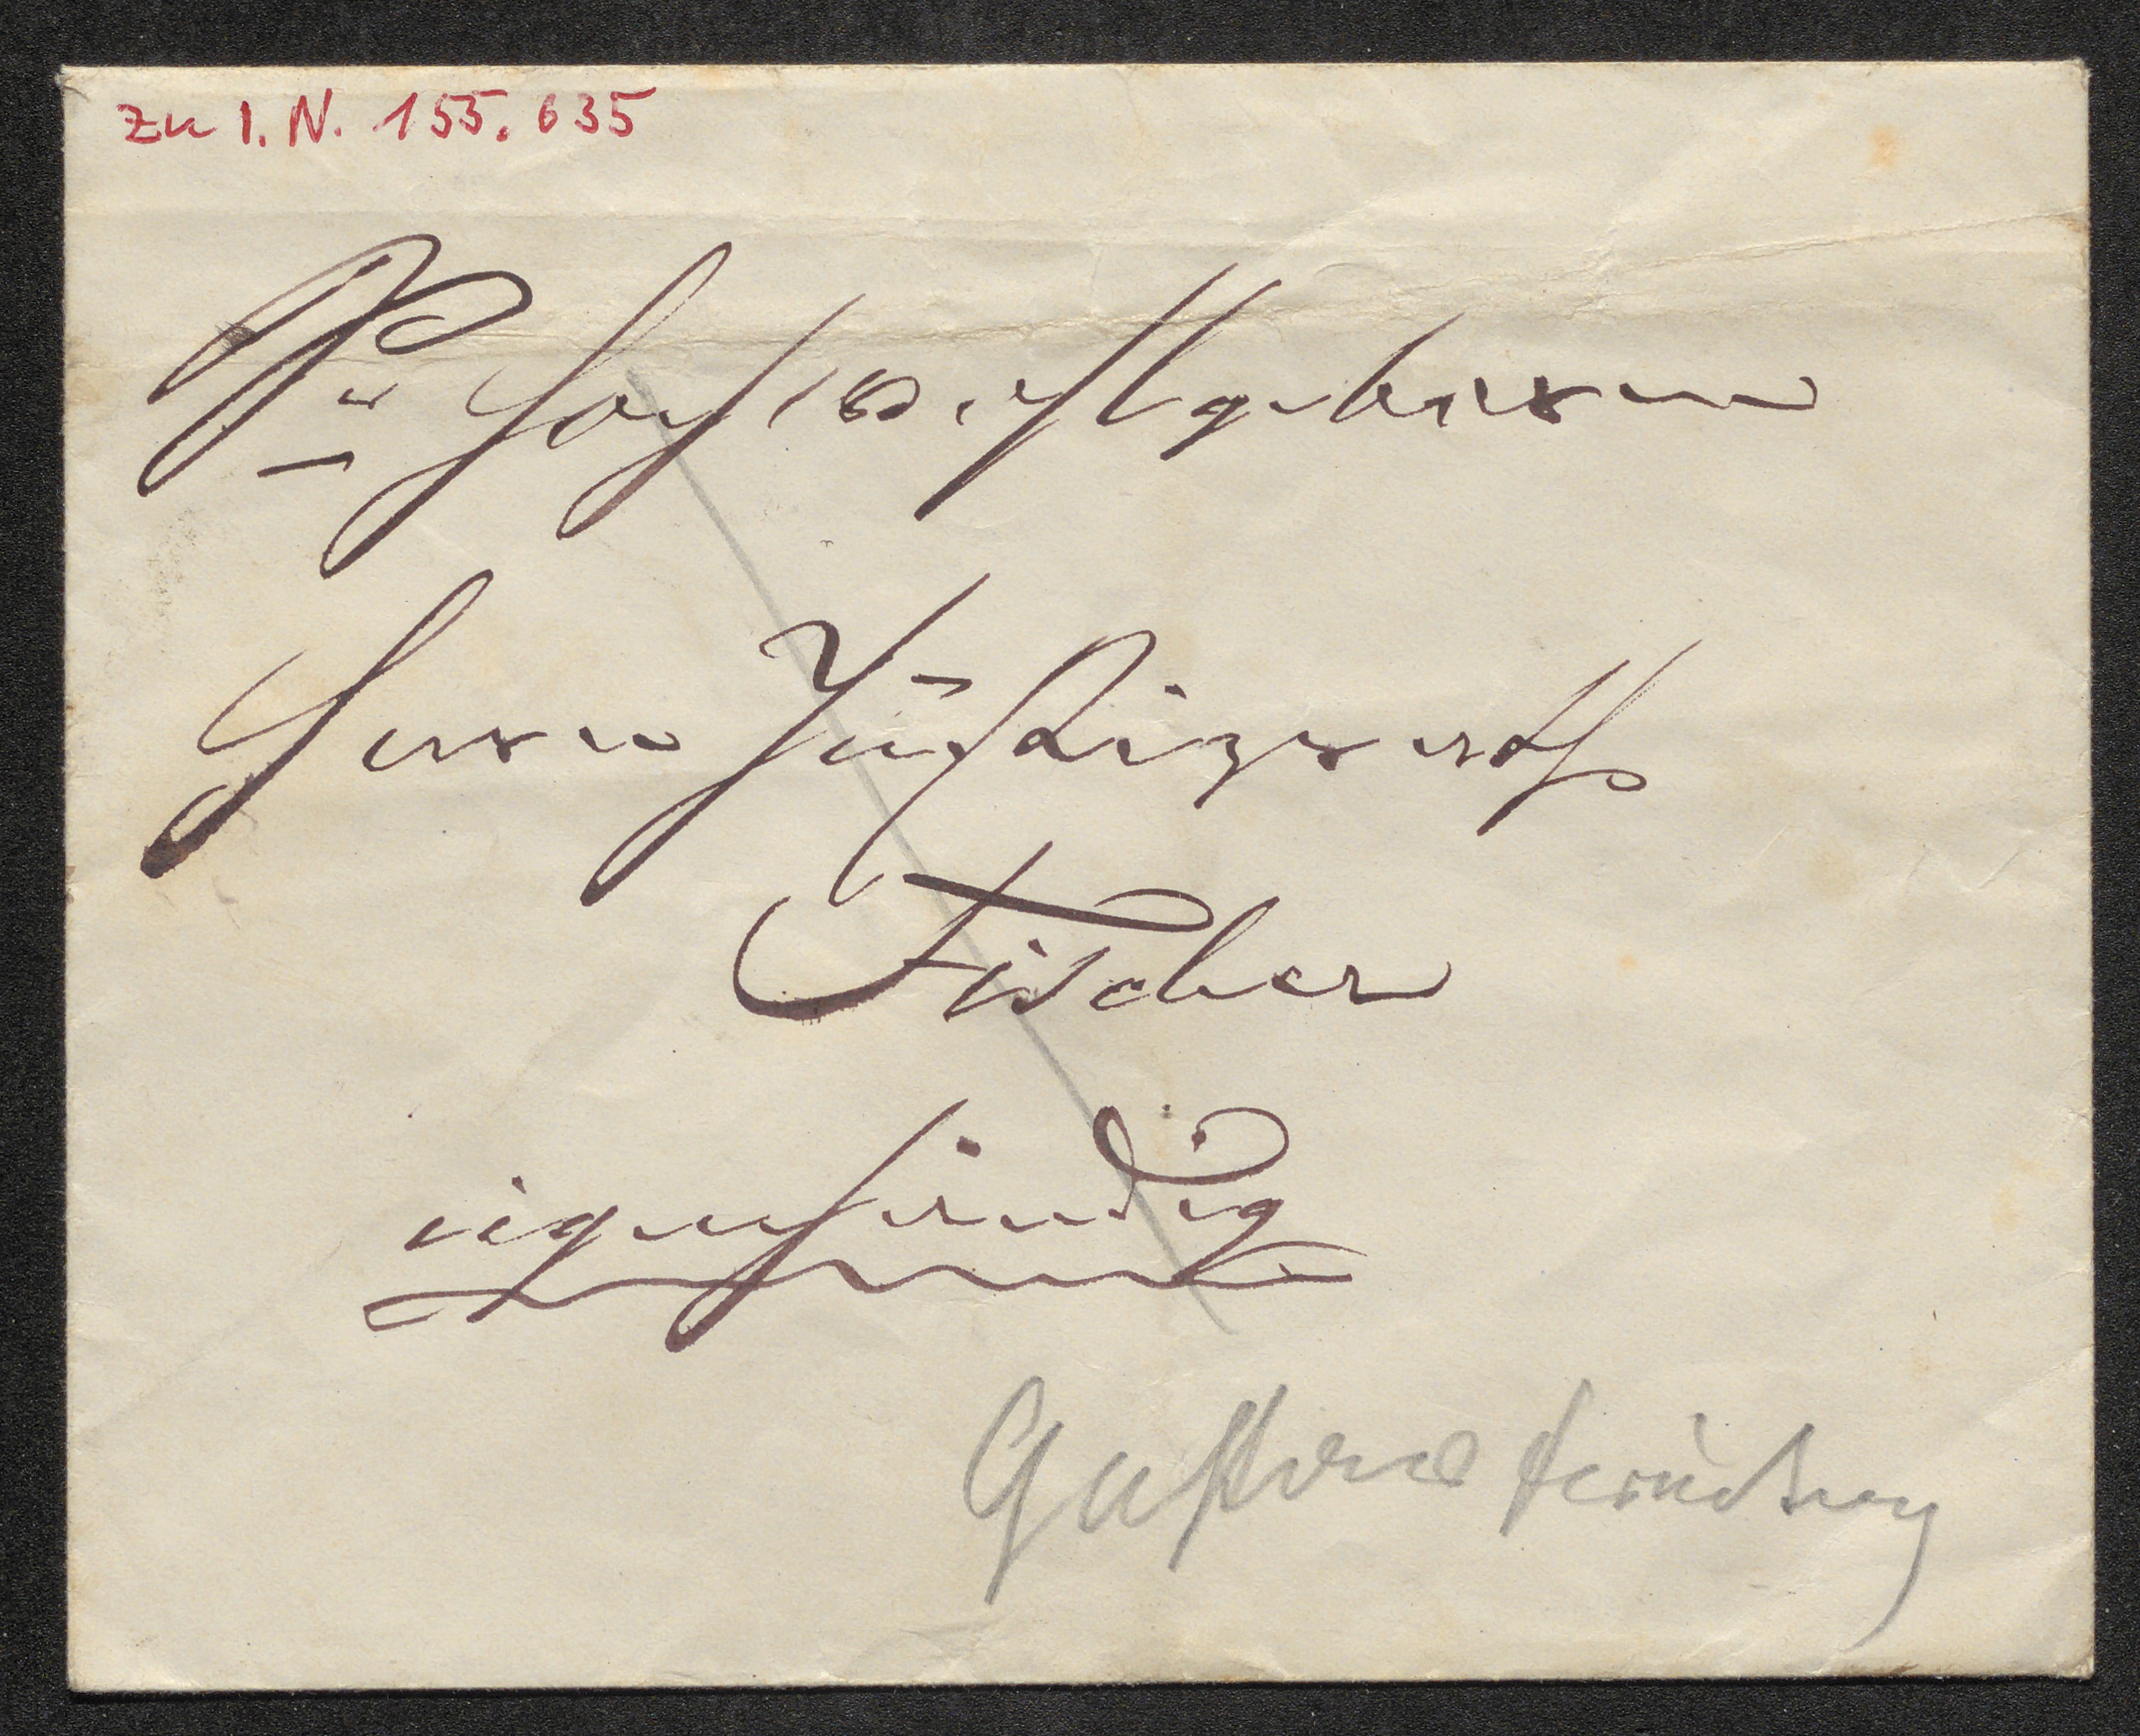 zu I. N. 155.635
Sr Hochwohlgeboren
Herrn Justizrath
Fischer
eigenhändig